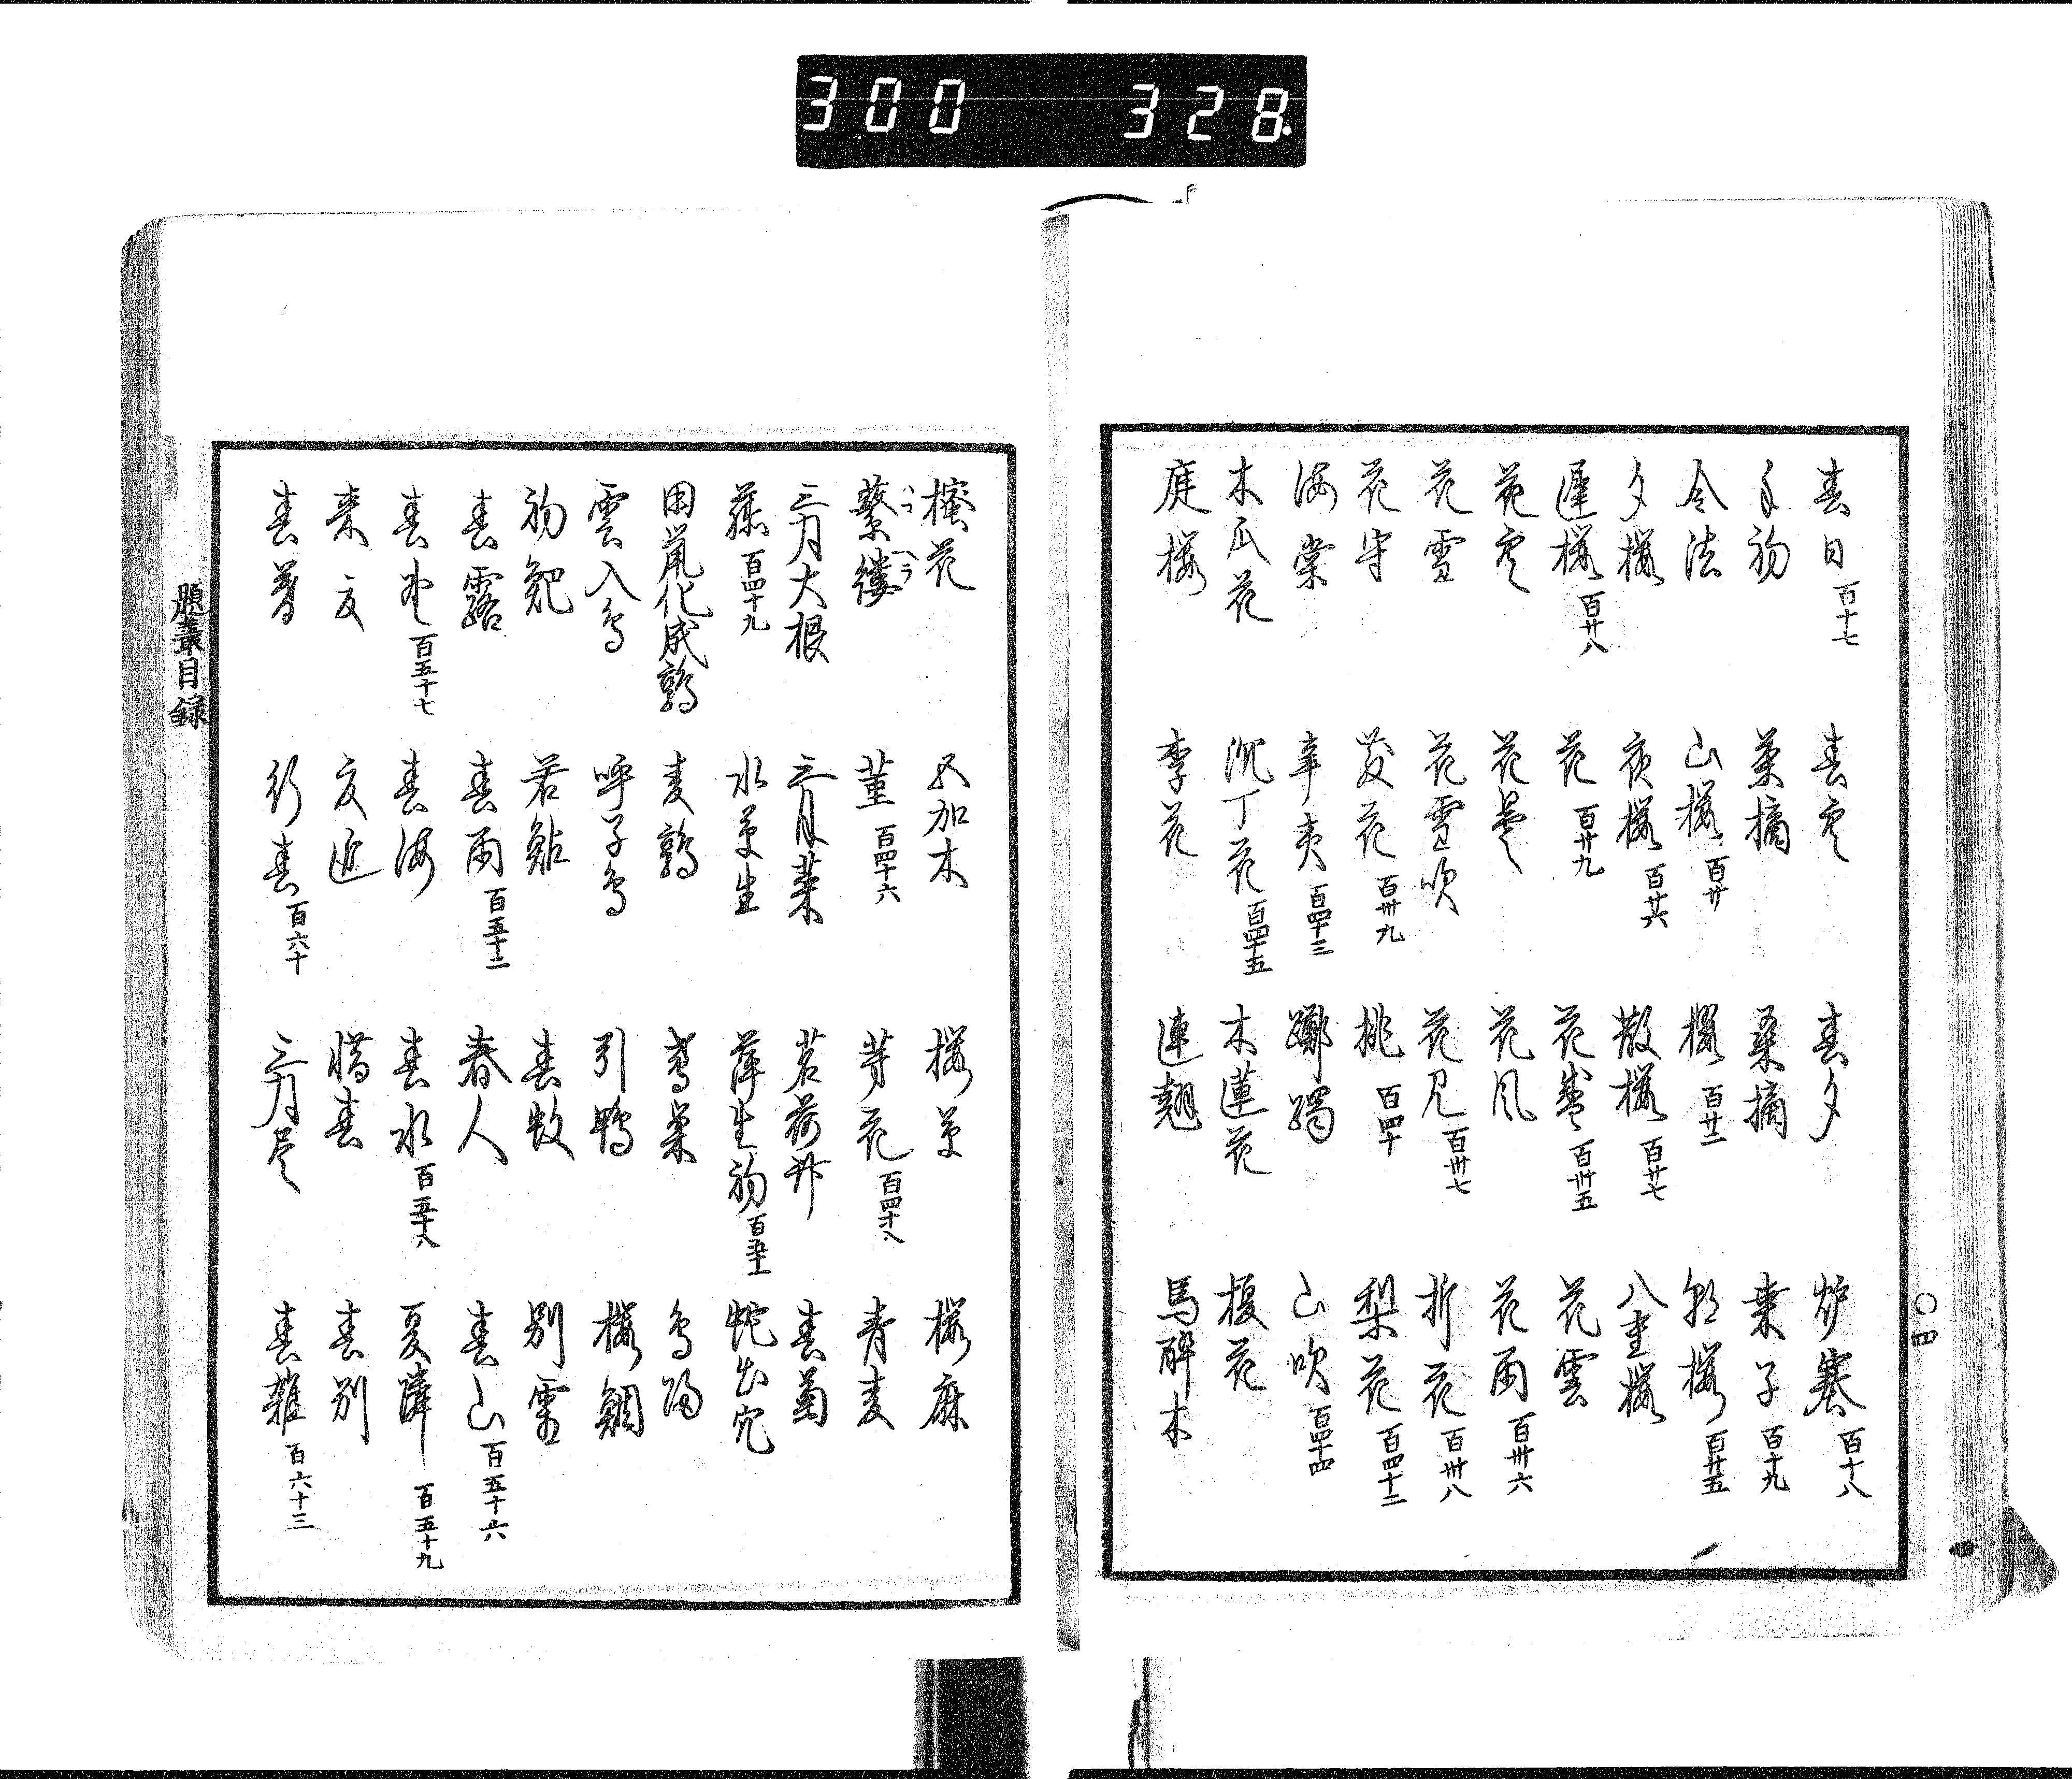 300 328
春日 百十七 春寒 春夕 炉塞 百十八
手初 菜摘 桑摘 菓子 百十九
令法 山桜 百廿 桜 百廿二 朝桜 百廿五
夕桜 夜桜 百廿六 散桜 百廿七 八重桜
遅桜 百廿八 花 百廿九 花盛 百卅五 花雲
花寒 花曇 花風 花雨 百卅六
花雪 花雪吹 花見 百卅七 折花 百卅八
花守 落花 百卅九 桃 百四十 梨花 百四十二
海棠 辛夷 百四十三 躑躅 山吹 百四十四
木瓜花 沈丁花 百四十五 木蓮花 榎花
庭桜 李花 連翹 馬酔木
〇四
樒花 五加木 桜草 桜麻
蘩蔞 ハコヘラ 菫 百四十六 芽花 百四十八 青麦
三月大根 三月菜 茗荷竹 春菊
藤 百四十九 水草生 萍生初 百五十一 蛇出穴
田鼠化成鶉 麦鶉 鷲巣 鳥帰
雲入鳥 呼子鳥 引鴨 桜鯛
初鮑 若鮎 春蚊 別霜
春露 春雨 百五十二 春人 春山 百五十六
春野 百五十七 春海 春水 百五十八 夏隣 百五十九
来夏 夏近 惜春 春別
春暮 行春 百六十 三月尽 春雑 百六十三
題叢目録